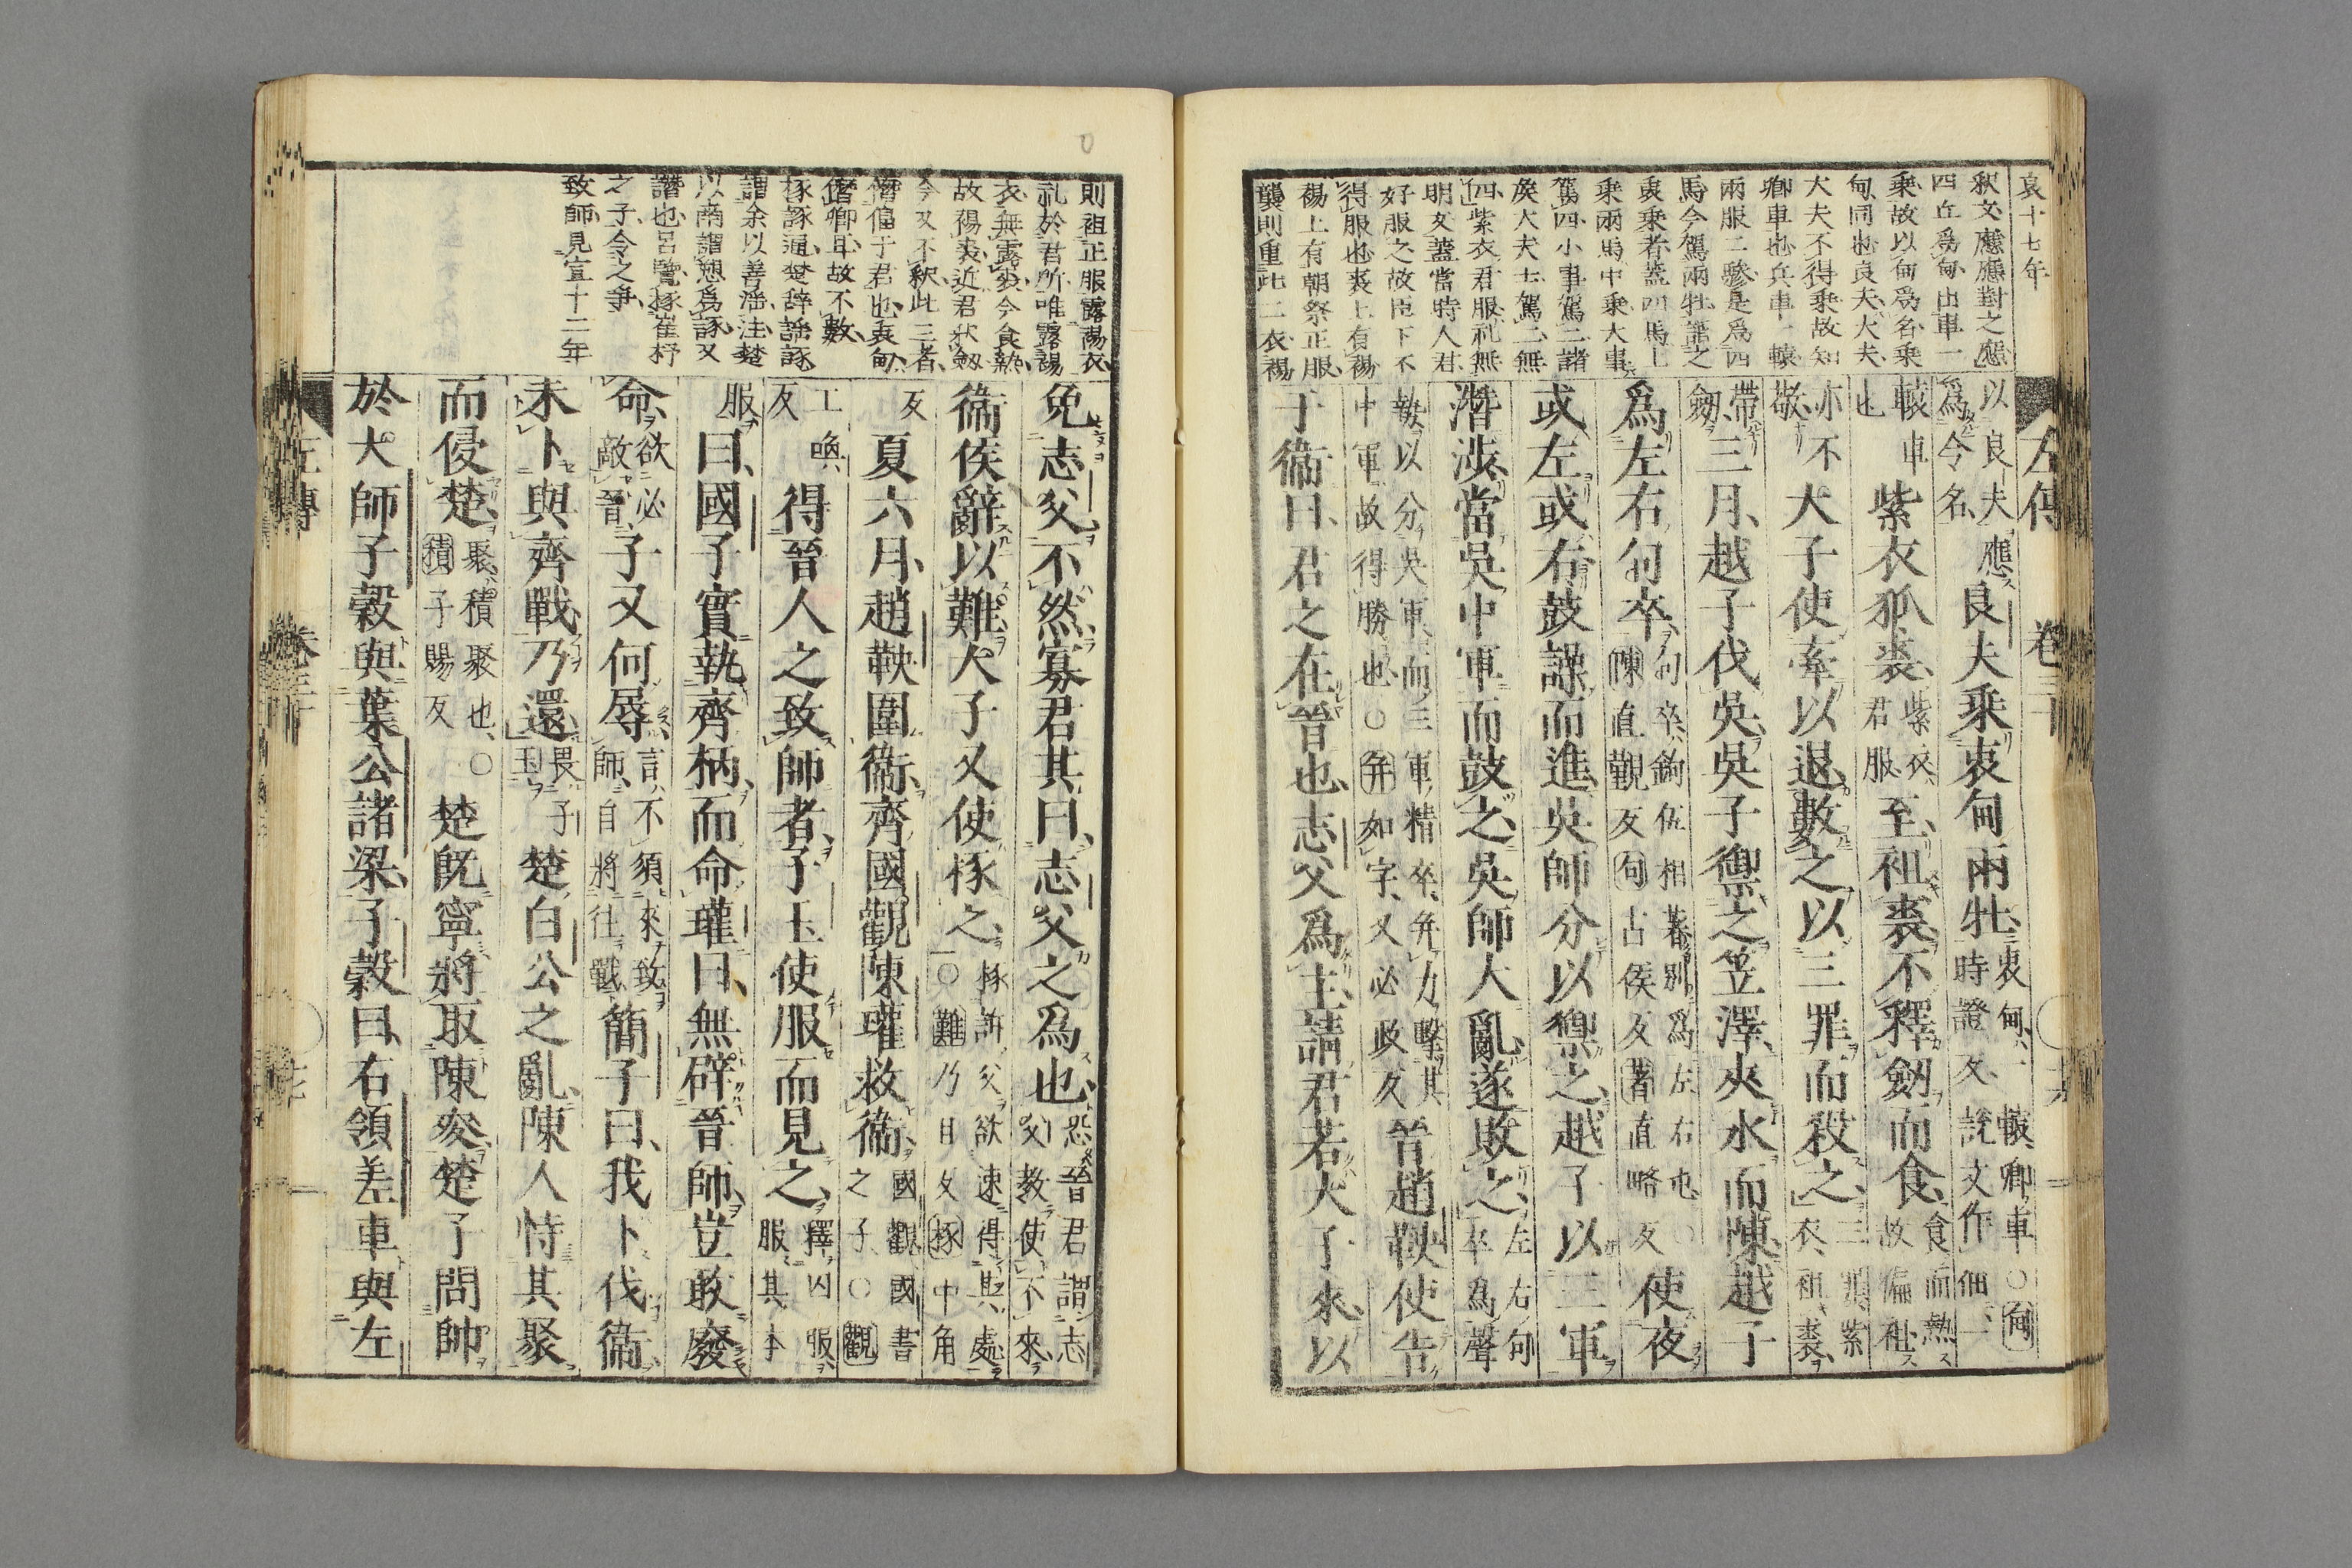 哀十七年
釈文應應對之應
四丘爲甸出車一
乘故以甸爲名乗
甸同也良夫大夫
大夫不得乗故知
卿車也兵車一轅
兩服二驂是爲四
馬今駕兩牡謂之
衷乗者蓋四馬上
乗兩馬中乗大事
駕四小事駕二諸
矦大夫士駕二無
四紫衣君服礼無
明文蓋當時人君
好服之故臣下不
得服也裘上有裼
裼上有朝祭正服
襲則重此二衣裼
左傳 卷三十
以良夫應
爲令名
良夫乗衷甸兩牡
衷甸一轅卿車○甸
時證反說文作佃一
轅車
也
紫衣狐裘
紫衣
君服
至袒裘不釋劒而食
食而熱
故偏袒
亦不
敬
大子使牽以退數之以三罪而殺之
三罪紫
衣袒裘
帶
劒
三月越子伐吳吳子禦之笠澤夾水而陳越子
爲左右句卒
句卒鉤伍相著別爲左右屯○
陳直覲反句古侯反著直略反
使夜
或左或右鼓譟而進吳師分以禦之越子以三軍
潛涉當吳中軍而鼓之吳師大亂遂敗之
左右句
卒爲聲
勢以分吳軍而三軍精卒幷力擊其
中軍故得勝也○幷如字又必政反
晉趙鞅使告
于衞曰君之在晉也志父爲主請君若大子來以
則袒正服露裼衣
礼於君所唯露裼
衣無露裘今食熱
故裼裘近君秋劒
今又不釈此三者
僭偪于君也衷甸
僭卿耳故不數
椓諑通楚辞謡諑
謂余以善淫注楚
以南謂愬爲諑又
譖也呂覽椓崔杼
之子令之爭
致師見宣十二年
免志父不然寡君其曰志父之爲也
恐晉君謂志
父教使不來
衞侯辭以難大子又使椓之
椓訴父欲速得其處
○難乃旦反椓中角
反
夏六月趙鞅圍衞齊國觀陳瓘救衞
國觀國書
之子○觀
工喚
反
得晉人之致師者子玉使服而見之
釋囚服
服其本
服
曰國子實執齊柄而命瓘曰無辟晉師豈敢廢
命
欲必
敵晉
子又何辱
言不須來致
師自將往戰
簡子曰我卜伐衞
未卜與齊戰乃還
畏子
玉
楚白公之亂陳人恃其聚
而侵楚
聚積聚也○
積子賜反
楚旣寧將取陳麥楚子問帥
於大師子穀與葉公諸梁子穀曰右領差車與左